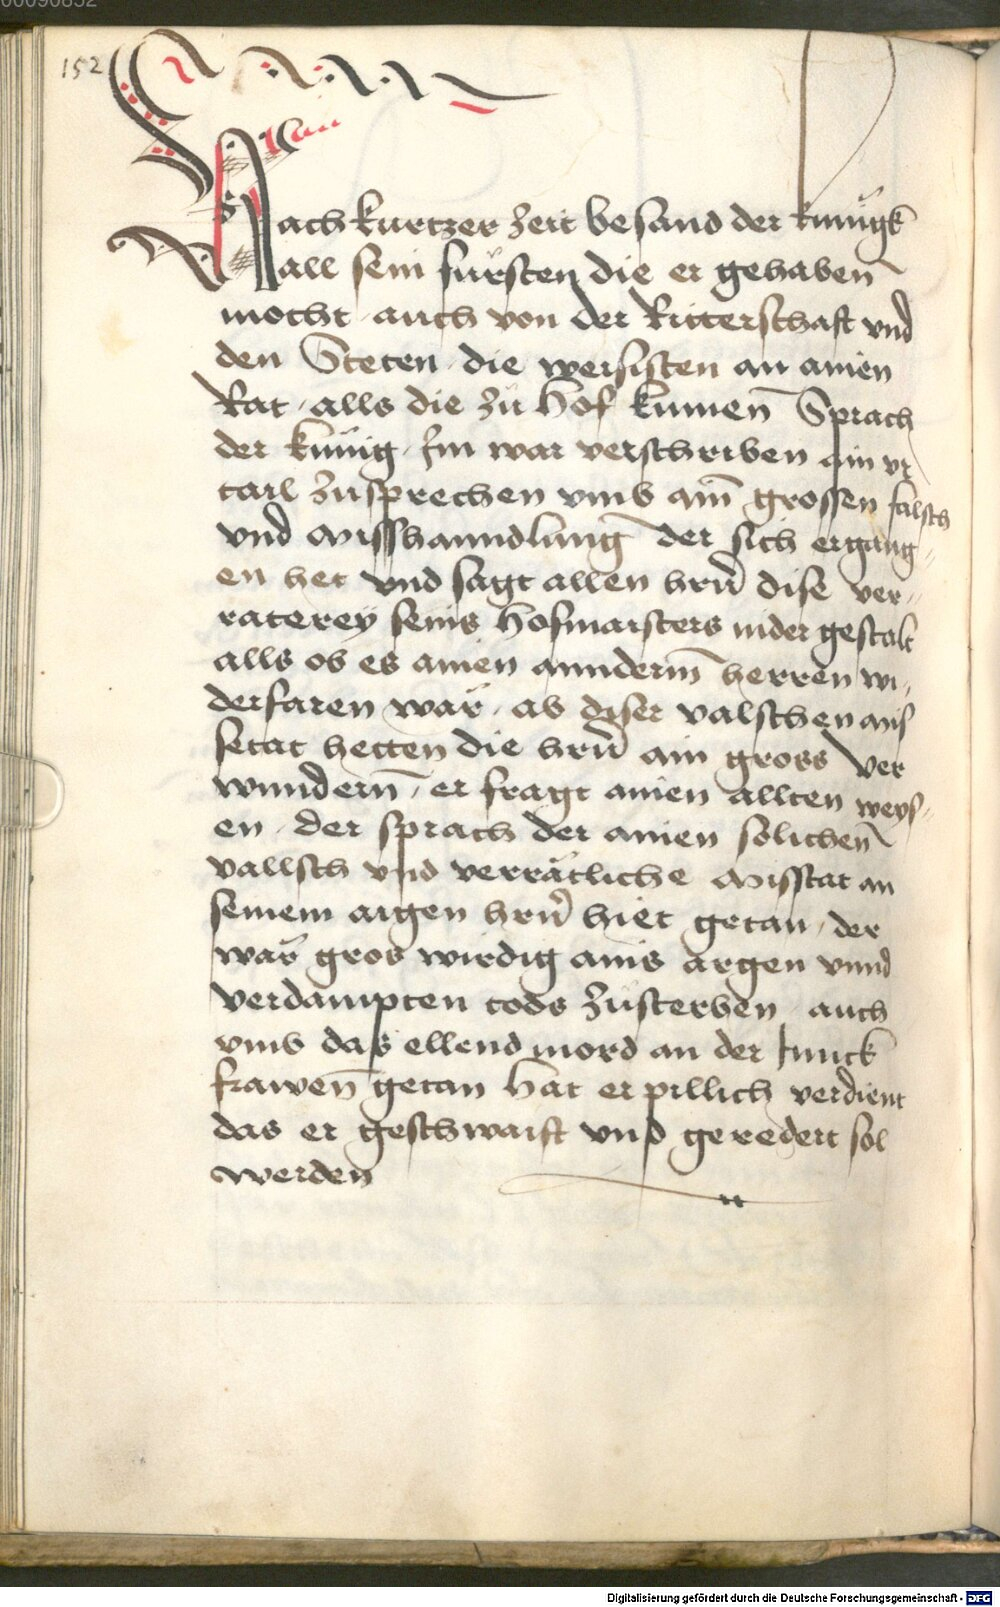 00090852
152
Nach kurtzer zeit besand der kunigk
all sein fürsten die er gehaben
mocht auch von der Ritterschaft vnd
den Steten die weisisten an ainen
Rat · alls die zu hof kumen Sprach
der künig Im war verschriben ain vr
tail zusprechen vmb ain grossen falsch
vnd misshanndlung der sich ergang„
en het vnd sagt allen hrn̄ dise ver„
raterey seins hofmaisters inder gestalt
alls ob es ainen anndernn herren wi„
derfaren wär · ab diser valschen auf
setat hetten die hrn̄ ain gross ver
wundern̄ · er fragt ainen allten weys„
en · der sprach der ainen solichen
vallsch vnd verrätliche misstat an
seinem aigen hrn̄ hiet getan · der
wär gros wirdig ains argen vnnd
verdampten tods zusterben auch
vmb das ellend mord an der Junck
frawen getan hat er pillich verdient
das er geschwaift vnd geredert sol
werden
Digitalisierung gefördert durch die Deutsche Forschungsgemeinschaft - DFG